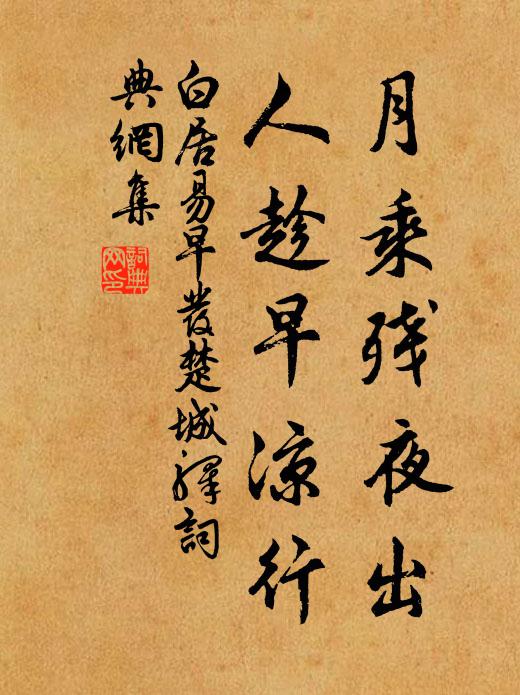 月乘残夜出
人趁早涼行
白居易早發楚城驛詞
典網集
詞典
网印